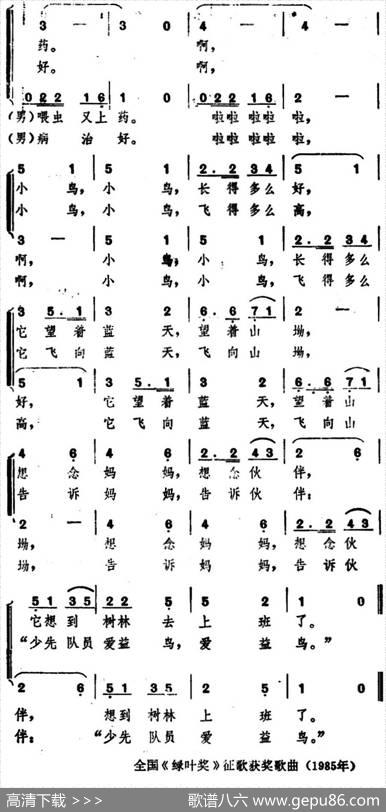 3 — 3 0 4 — 4 —
药。 啊，
好。 啊，
0 2 2 2 1 6 1 0 0 2 2 2 1 6 2 —
(男)喂虫 又上 药。 啦啦 啦啦 啦，
(男)病 治 好。 啦啦 啦啦 啦，
5 1 5 1 2 . 2 3 4 5 1
小 鸟， 小 鸟， 长 得 多么 好，
小 鸟， 小 鸟， 飞 得 多么 高，
3 — 5 1 5 1 2 . 2 3 4
啊， 小 鸟， 小 鸟， 长 得 多么
啊， 小 鸟， 小 鸟， 飞 得 多么
3 5 . 1 3 2 6 . 6 7 1 2 —
它 望 着 蓝 天， 望 着 山 坳，
它 飞 向 蓝 天， 飞 向 山 坳，
5 1 3 5 . 1 3 2 6 . 6 7 1
好， 它 望 着 蓝 天， 望 着 山
高， 它 飞 向 蓝 天， 飞 向 山
4 6 4 6 2 . 2 4 3 2 6
想 念 妈 妈， 想 念 伙 伴，
告 诉 妈 妈， 告 诉 伙 伴：
2 — 4 6 4 6 2 . 2 4 3
坳， 想 念 妈 妈， 想 念 伙
坳， 告 诉 妈 妈， 告 诉 伙
5 1 3 5 2 2 5 5 2 1 0
它想 到 树林 去 上 班 了。
“少先 队 员 爱益 鸟， 爱 益 鸟。”
2 6 5 1 3 5 2 2 5 1 0
伴， 想到 树林 上 班 了。
伴： “少先 队员 爱 益 鸟。”
全国《绿叶奖》征歌获奖歌曲（1985年）
高清下载 歌谱八六 www.gepu86.com